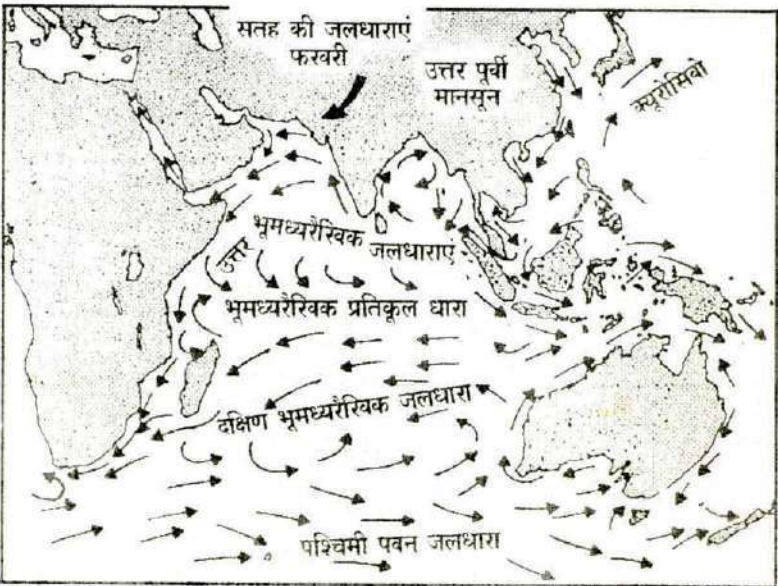 सतह की जलधाराएं
फरवरी
उत्तर पूर्वी
मानसून
क्यूरोसिवो
उत्तर भूमध्यरैखिक जलधाराएं
भूमध्यरैखिक प्रतिकूल धारा
दक्षिण भूमध्यरैखिक जलधारा
पश्चिमी पवन जलधारा